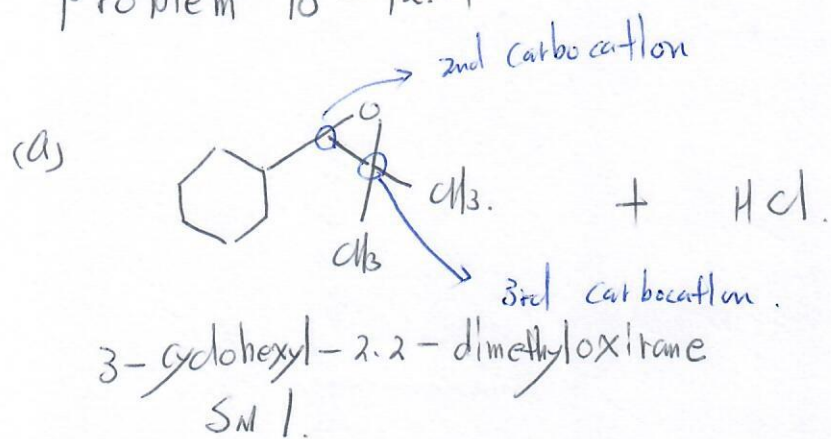 Problem 10
2nd carbocation
(a)
O
CH3.
+ HCl.
CH3
3rd carbocation.
3-cyclohexyl-2.2-dimethyloxirane
SN1.